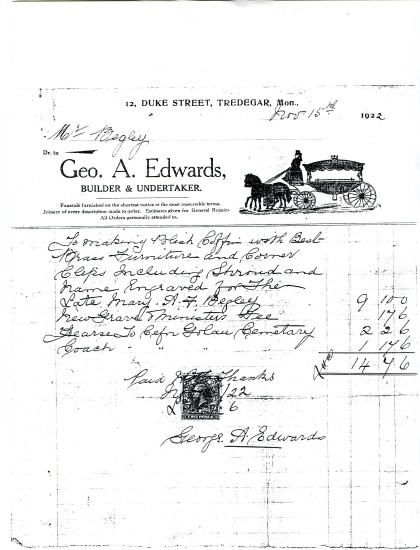 12, DUKE STREET, TREDEGAR, Mon.,
Nov 15th 1922
Mr Begley
Dr. to
GEO. A. EDWARDS,
BUILDER & UNDERTAKER.
Funerals furnished on the shortest notice at the most reasonable terms.
Joinery of every description made to order. Estimates given for General Repairs
All Orders personally attended to.
To making Polish Coffin with Best
Brass Furniture and Corner
Clips Including Shroud and
Name Engraved for The
Late Mary. A. F. Begley 9 10 0
New Grave & Ministers Fee 17 6
Hearse To Cefn Golau Cemetary 2 2 6
Coach " " " 1 17 6
14 7 6
Paid Thanks
22
£ 6
George. A. Edwards